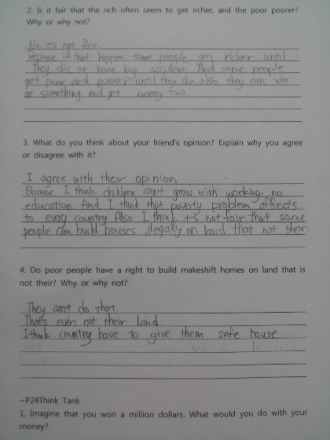 2. Is it fair that the rich often seem to get richer, and the poor poorer?
Why or why not?
No, its not fair.
Because if that happen, some people get richer until
They die or have big accident. And some people
get poor and poorer until they die, also they can win
at something and get money too.
3. What do you think about your friend's opinion? Explain why you agree
or disagree with it?
I agree with their opinion.
Because I think children can't grow with working, no
education. And I think that poverty problem affects
to every country. Also I think it's not fair that some
people can build houses illegally on land that not their.
4. Do poor people have a right to build makeshift homes on land that is
not their? Why or why not?
They can't do that.
That's even not their land.
I think country have to give them safe house
~P24Think Tank
1. Imagine that you won a million dollars. What would you do with your
money?